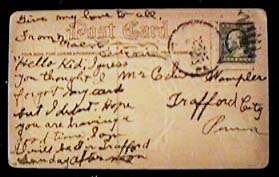 Give my love to all.
From Mae
Post Card
Hello Kid, I guess
you thought I
forgot my card
but I didn't. Hope
you are having a
good time I am
Will be in Trafford
Sunday afternoon
Mr Wampler
Trafford City
Penna